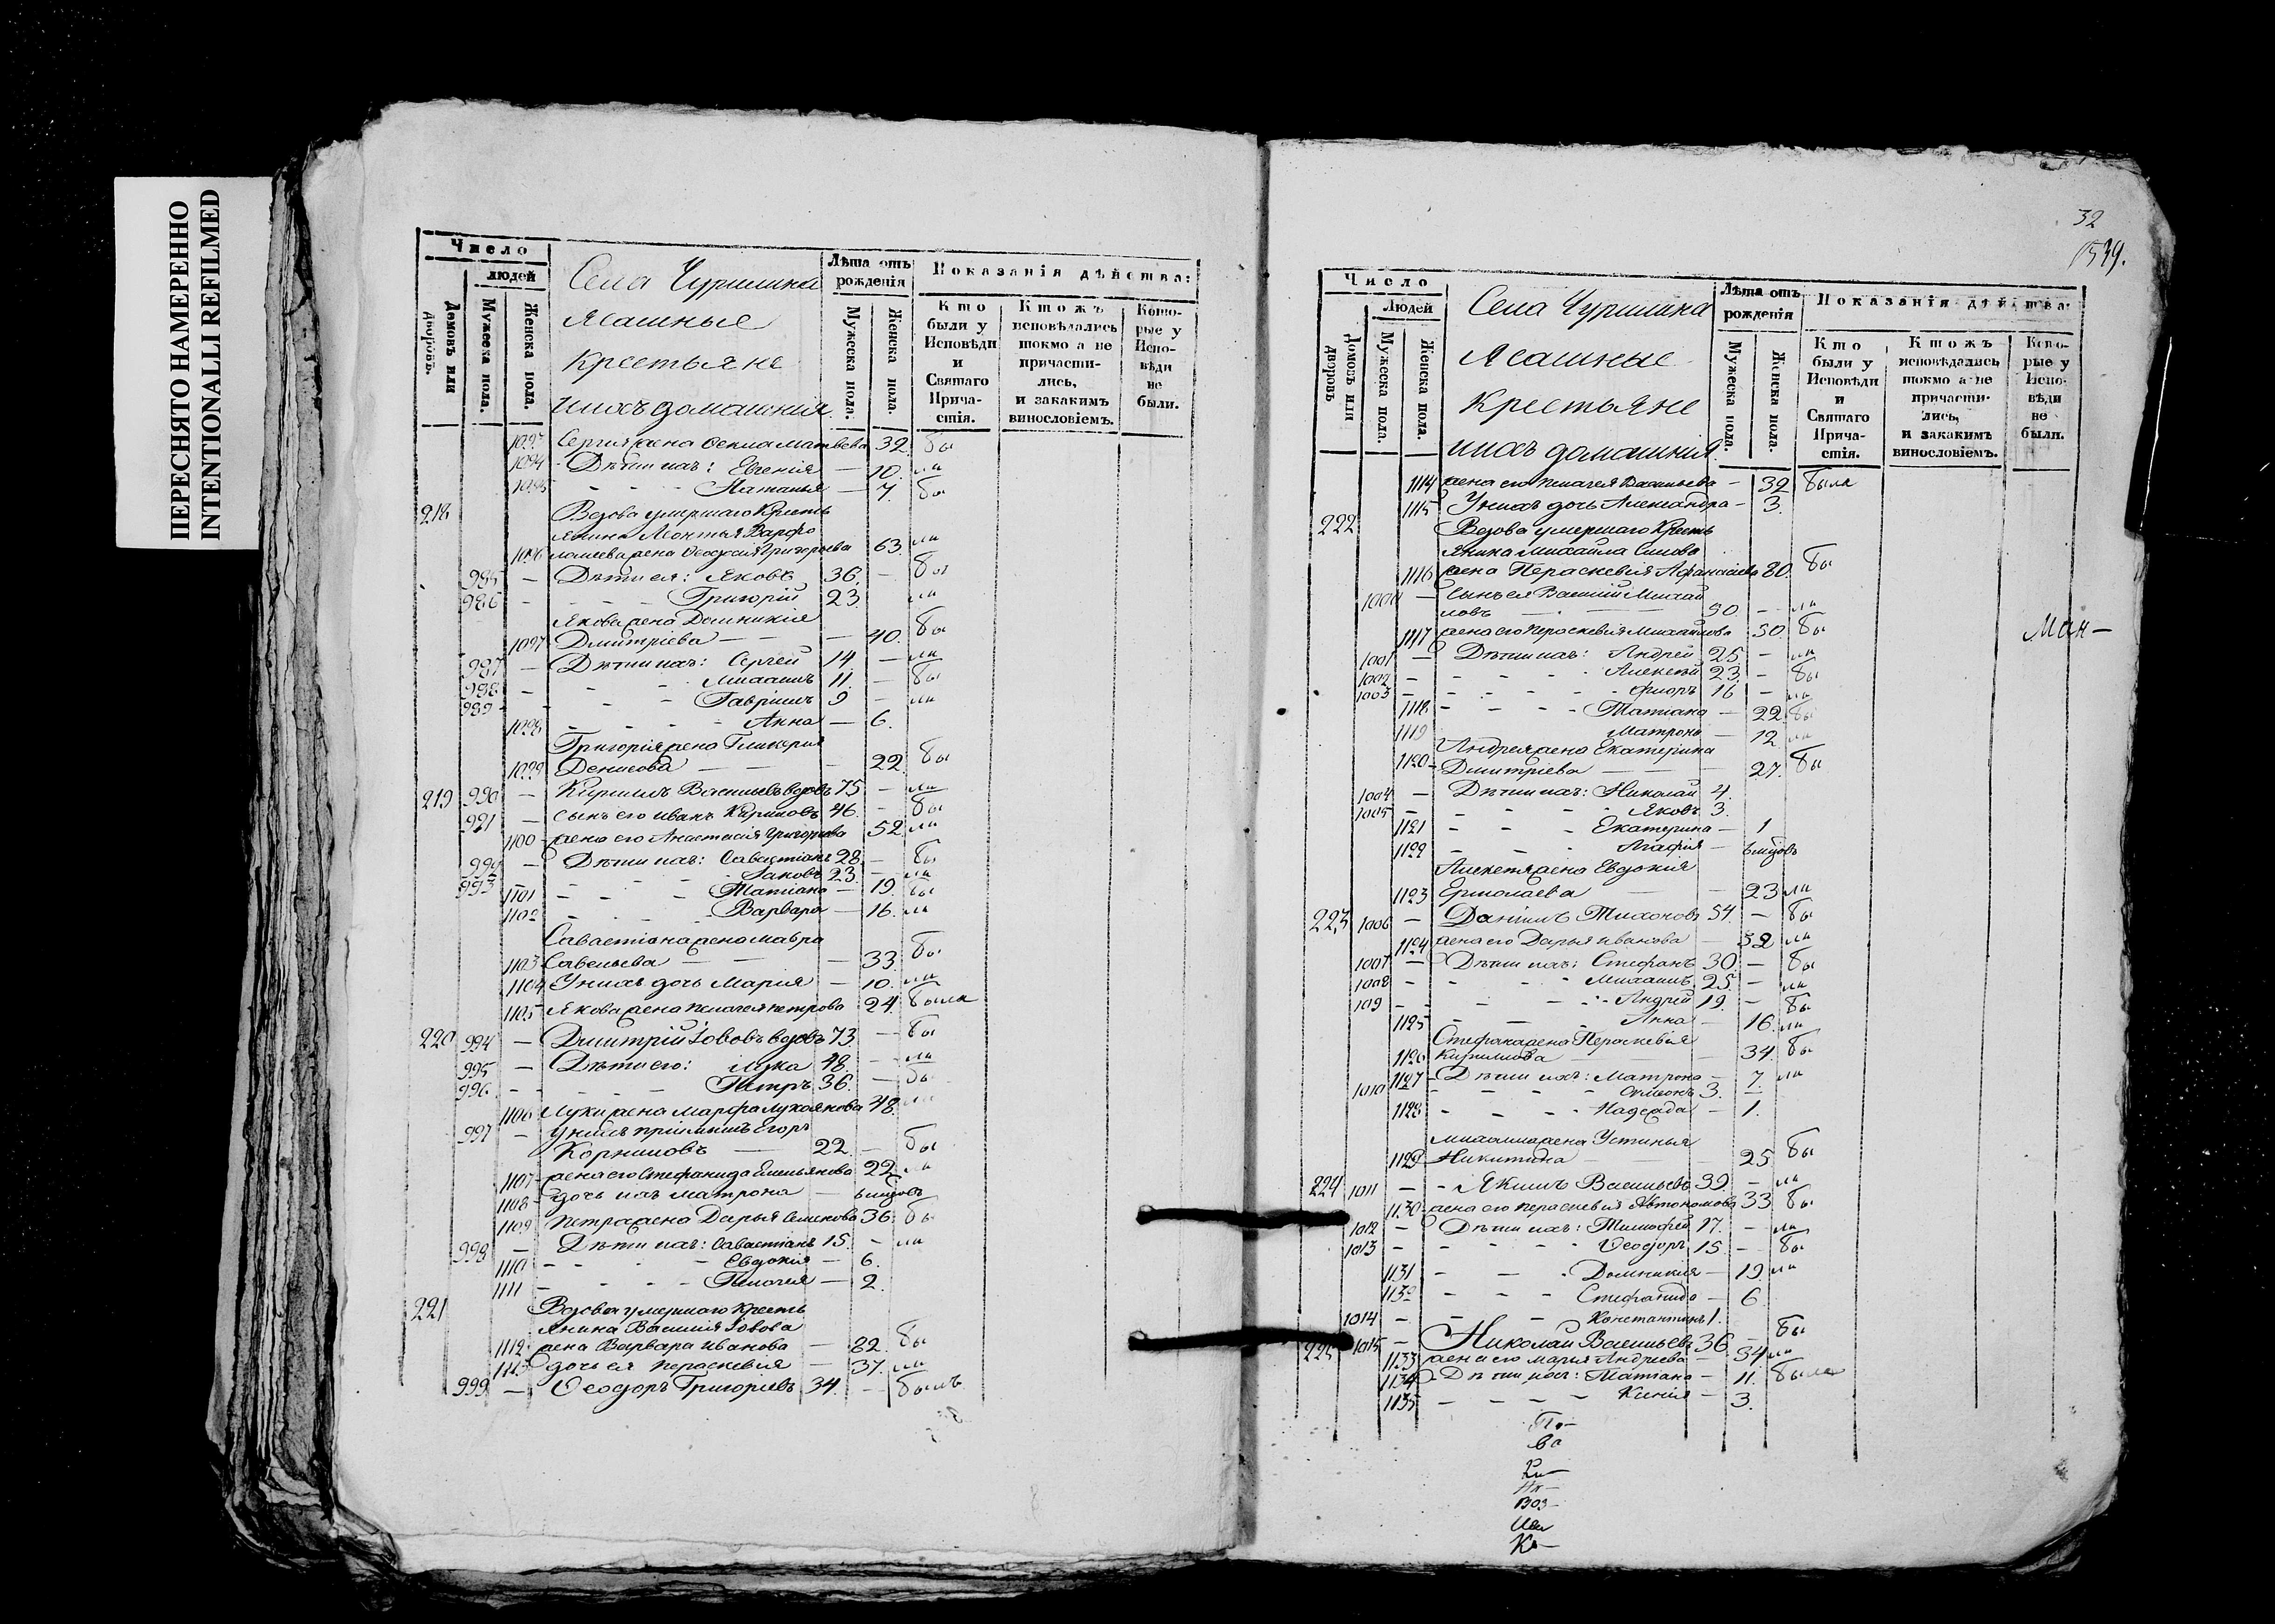 ПЕРЕСНЯТО НАМЕРЕННО
INTENTIONALLI REFILMED
Число
людей
Домовъ или дворовъ.
Мужеска пола.
Женска пола.
Села Чуршина
Ясашные
крестьяне
ихъ домашнія
Лѣта отъ рожденія
Мужеска пола.
Женска пола.
Показанія дѣйства:
Кто были у Исповѣди и Святаго Прича- стія.
Ктожъ исповѣдались токмо а не причасти- лись, и закакимъ винословіемъ.
Кото- рые у Испо- вѣди не были.
1093 Сергія жена Фекла Матвѣева 32 бы
1094 Дѣти ихъ: Евгенія — 10. ли
1095 - - - Наталья — 7. бы
218 Вдова умершаго Кресть
янина Леонтья Варфо
1096 ломеева жена Феодосія Григорьева 63 ли
985 — Дѣти ея: Яковъ 36. — бы
986 - - - Григорій 23 ли
Якова жена Домникія
1097 Дмитріева — — — 40. бы
987 — Дѣти ихъ: Сергей 14 — ли
988 - - - Михаилъ 11. — бы
989 - - - Гавріилъ 9 — ли
1098 - - - Анна — 6.
Григорія жена Гликерія
1099 Денисова — — — 22 бы
219 990 — Кирилъ Васильевъ вдовъ 75 — ли
991 — сынъ его Иванъ Кириловъ 46 — бы
1100 жена его Анастасія Григорьева 52 ли
992 — Дѣти ихъ: Савастіанъ 28 — бы
993 - - - Іаковъ 23. — ли
1101 - - - Татіана — 19. бы
1102 - - - Варвара — 16. ли
Савастіана жена Мавра
1103 Савельева — — — 33. бы
1104 У нихъ дочь Марія — 10. ли
1105 Якова жена Пелагея Петрова 24. была
220 994 — Дмитрій Іововъ вдовъ 73 — бы
995 — Дѣти его: Лука 48. — ли
996 - - - Петръ 36. — бы
1106 Луки жена Марфа Лукоянова 48. ли
997 — У нихъ пріемышъ Егоръ
Корниловъ — 22. — бы
1107 жена его Стефанида Емельянова 22 ли
1108 дочь ихъ Матрона — 6 мцовъ
1109 Петра жена Дарья Семенова 36. бы
998 — Дѣти ихъ: Савастіанъ 15. — ли
1110 - - - Евдокія — 6.
1111 - - - Пелагея — 2.
221 Вдова умершаго Кресть
янина Василія Іовова
1112 жена Варвара Иванова — 82. бы
1113 дочь ея Пераскевія — 37. ли
999 — Феодоръ Григорьевъ 34. — былъ
32
1539.
Число
Людей
Домовъ или дворовъ
Мужеска пола.
Женска пола.
Села Чуршина
Ясашные
Крестьяне
ихъ домашнія
Лѣта отъ рожденія
Мужеска пола.
Женска пола.
Показанія дѣйства:
Кто были у Исповѣди и Святаго Прича- стія.
Ктожъ исповѣдались токмо а не причасти- лись, и закакимъ винословіемъ.
Кото- рые у Испо- вѣди не были.
1114 жена его Пелагея Васильева — 32 была
1115 У нихъ дочь Александра — 3.
222 Вдова умершаго Кресть
янина Михаила
1116 жена Пераскевія Афанасіева 80. бы
1000 — Сынъ ея Василій Михай
ловъ — 50. — ли
1117 жена его Пераскевія Михайлова 50. бы
1001 — Дѣти ихъ: Андрей 25 — ли
1002 - - - Алексѣй 23. — бы
1003 - - - Флоръ 16 — ли
1118 - - - Татіана — 22. бы
1119 Матрона — 12 ли
Андрея жена Екатерина
1120 Дмитріева — — — 27. бы
1004 — Дѣти ихъ: Николай 4.
1005 - - - Яковъ 3.
1121 - - - Екатерина — 1
1122 - - - Агафія — 6 мцовъ
Алексѣя жена Евдокія
1123 Ермолаева — — 23 ли
223 1006 — Даніилъ Тихоновъ 54. — бы
1124 жена его Дарья Иванова — 52 ли
1007 — Дѣти ихъ: Стефанъ 30. — бы
1008 - - - Михаилъ 25. — ли
109 - - - Андрей 19. — бы
1125 - - - Анна — 16. ли
Стефана жена Пераскевія
1126 Кирилова — — 34. бы
1127 Дѣти ихъ: Матрона — 7. ли
1010 - - - Симеонъ 3. —
1128 - - - Надежда — 1.
Михаила жена Устинья
1129 Никитина — — 25 бы
224 1011 — Якимъ Васильевъ 39. — ли
1130 жена его Пераскевія Автономова 33 бы
1012 — Дѣти ихъ: Тимофей 17. — ли
1013 - - - Феодоръ 15 — бы
1131 - - - Домникія — 19. ли
1132 - - - Стефанида — 6
1014 - - - Константинъ 1.
225 1015 — Николай Васильевъ 36 — бы
1133 жена его Марья Андреева — 34 ли
1134 Дѣти ихъ: Татіана — 11. была
1135 - - - Ксенія — 3.
Ман—
По—
ва
Ки—
Ни—
Воз—
Ива
Ко—